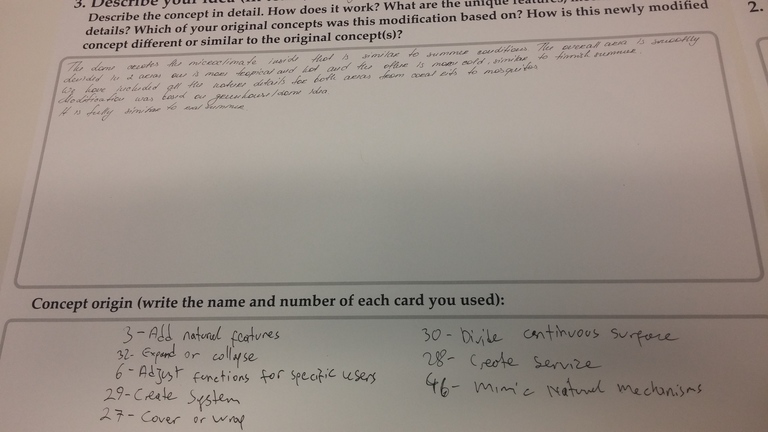 3. Describe your idea (in
2.
Describe the concept in detail. How does it work? What are the unique features,
details? Which of your original concepts was this modification based on? How is this newly modified
concept different or similar to the original concept(s)?
The dome creates the microclimate inside that is similar to summer conditions. The overall area is smoothly
divided in 2 areas one is more tropical and hot and the other is more cold, similar to finnish summer.
We have included all the nature details for both areas from to mosquitos
Modification was based on greenhouse/dome idea
It is fully similar to real summer
Concept origin (write the name and number of each card you used):
3-Add natural features
32- Expand or collapse
6-Adjust functions for specific users
29-Create System
27-Cover or wrap
30-Divide continuous surface
28- Create service
46- Mimic Natural mechanisms